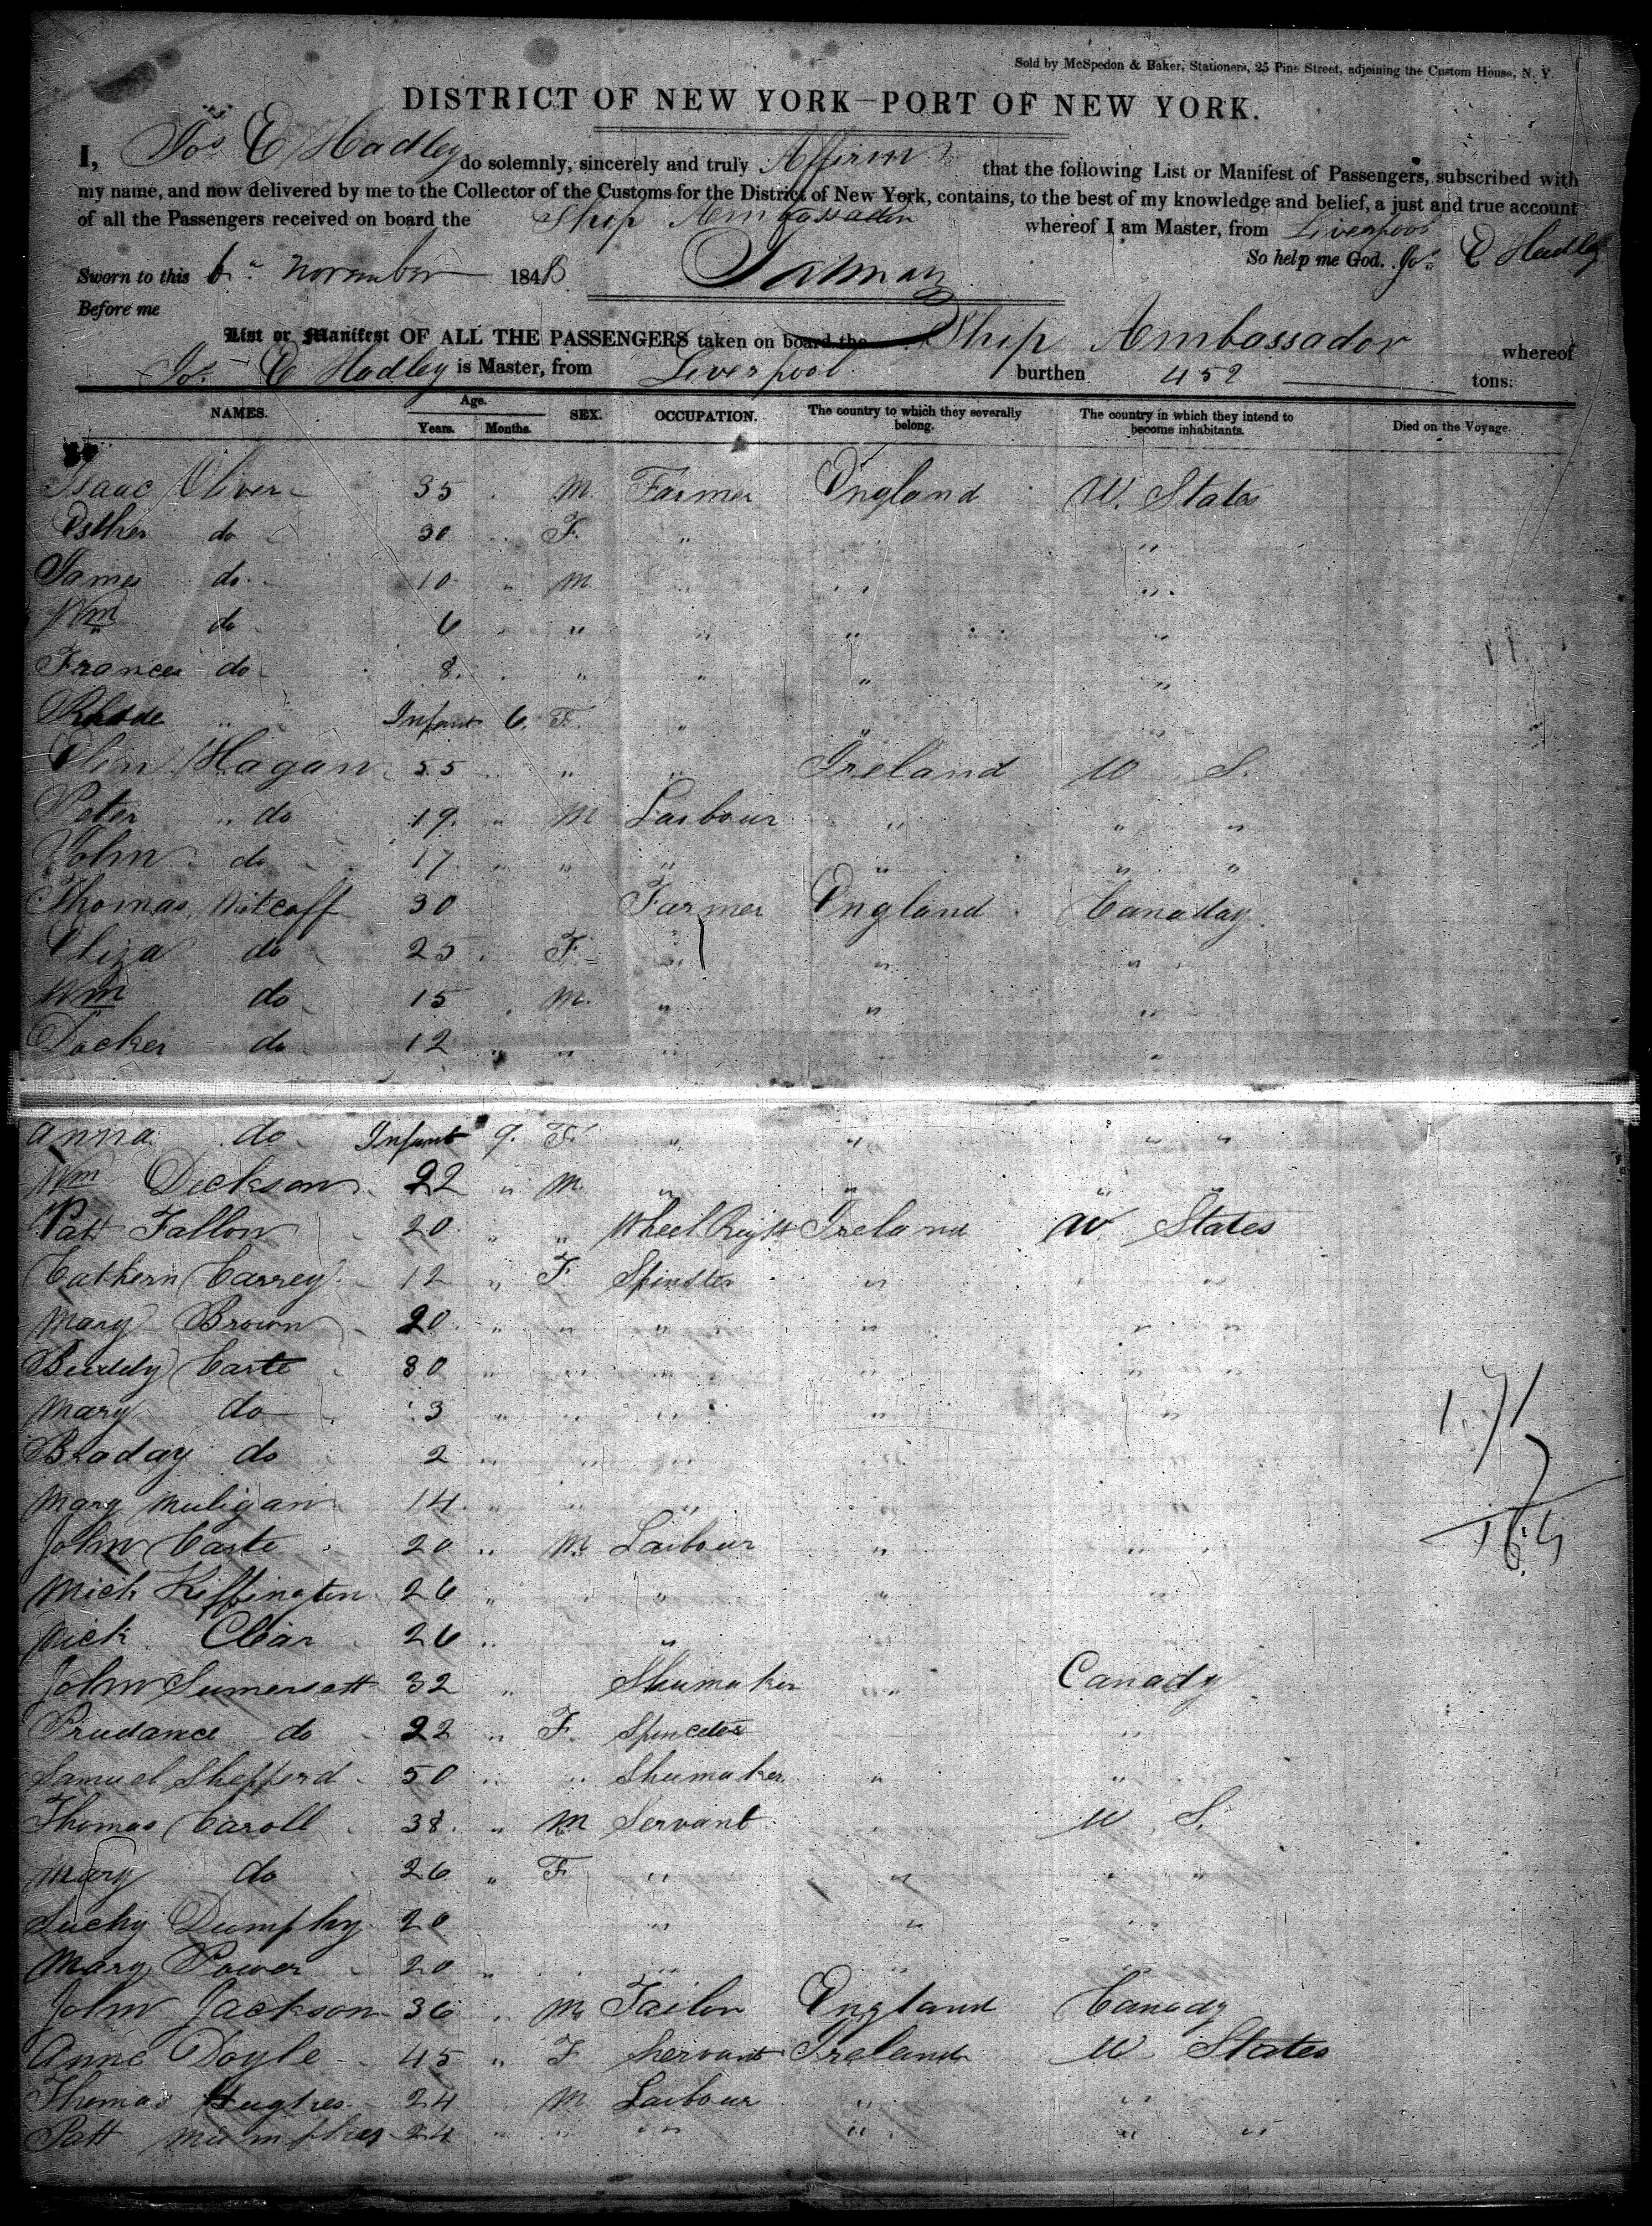 Sold by McSpedon & Baker, Stationers, 25 Pine Street, adjoining the Custom House, N. Y.
DISTRICT OF NEW YORK—PORT OF NEW YORK.
I, Jos E Hadley do solemnly, sincerely and truly Affirm that the following List or Manifest of Passengers, subscribed with
my name, and now delivered by me to the Collector of the Customs for the District of New York, contains, to the best of my knowledge and belief, a just and true account
of all the Passengers received on board the Ship Ambassador whereof I am Master, from Liverpool
So help me God. Jos E Hadley
Sworn to this 6 November 1848
Before me
List or Manifest OF ALL THE PASSENGERS taken on board the Ship Ambassador whereof
Jos E Hadley is Master, from Liverpool burthen 452 tons:
NAMES. Age. Years. Months. SEX. OCCUPATION. The country to which they severally belong. The country in which they intend to become inhabitants. Died on the Voyage.
Isaac Oliver 35 M. Farmer England U. States
Esther do 30 F. " " "
James do 10 " M. " " "
Wm do 6 " " " " "
Frances do 8. " " " "
Rhode " Infant 6. F. " " "
Elin Hagan 55 " " " Ireland U S.
Peter " do 19. " M Laibour " " "
John do 17 " " " " " "
Thomas 30 Farmer England Canaday
Eliza do 25 F. " " "
Wm do 15 M. " " "
do 12 " " " "
Anna do Infant 9. F. " " " "
Wm Dickson 22 " M. " " " "
Patt Fallon 20 " " Wheel Right Ireland U States
Cathern Carrey 12 " F. Spinster " "
Mary Brown 20. " " " " " "
Biddy Carte 30 " " " " " "
Mary do 3 " " " " "
Braday do 2 " " "
Mary Muligan 14. " " " "
John Carte 20 " M. Laibour " "
Mich Kiffington 26 " " "
Mick Clear 26 " "
John Sumersett 32 " Shumaker " Canady
Prudance do 22 " F. "
Samuel Shepperd 50 " " Shumaker " "
Thomas Caroll 38. " M Servant U S.
Mary do 26 " F " " " "
Lucky Dumphy 20 " "
Mary Power 20 " " "
John Jackson 36 " M Tailor England Canady
Anne Doyle 45 " F Shervant Ireland U States
Thomas Hughes 24 M Laibour " "
Patt 24 " " " " " "
171